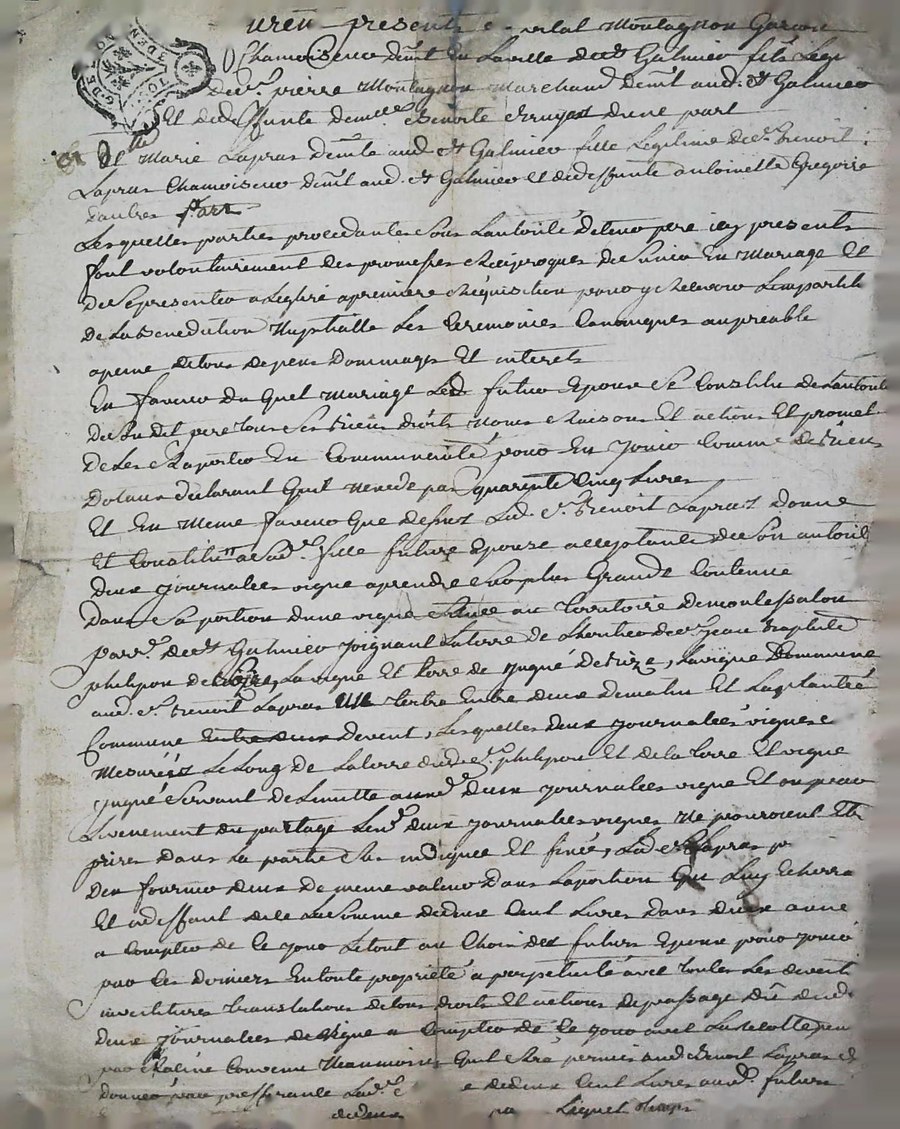 furent presents Montagnon Garçon
Chamoiseur demt en la ville de st Galmier fils legi
de sr. pierre Montagnon Marchand demt aud. st Galmier
Et de deffunte demelle Benoite d'une part
Et dlle Marie Lapras demte aud st Galmier fille Legitime de sr. Benoit
Lapras Chamoiseur demt aud. st Galmier et de deffunte antoinette Gregoire
dautres part
Lesquelles parties procedantes sous Lautorité de leur pere icy presents
font volontairement des promesses Reciproques de sunir En Mariage Et
de se presenter a Leglise a premiere Requisition pour y Recevoir Limpartit
de La Benediction Nuptialle Les Ceremonies Canoniques au preable
a peine de tous depens Dommages Et interets
En faveur du quel Mariage Led. futur Epoux se Constitue de Lautorité
de son dit pere tous ses Biens droits noms Raisons Et actions Et promet
de Les Raporter En Communauté pour En jouir Comme de Biens
Dotaux declarant quil nexcede pas quarente Cinq Livres
Et En meme faveur que dessus Led. sr. Benoit Lapras donne
et Constitue a sad. fille future Epouze acceptante de son autorité
deux journalées vigne a prendre Grande Contenue
Dans sa portion dune vigne située au Territoire de montepalou
parr. de st Galmier joignant La terre de Lheritier de sr. jean Baptiste
philipon de La vigne Et terre de jugné de Rize, La vigne Commune
aud. sr. Benoit Lapras un tertre Entre deux de matin Et La plantée
Commune Entre deux de vent, Lesquelles deux journalées vignes
Mesurées Le Long de La terre dud. sr. philipon Et de la terre Et vigne
jugné servant de Limitte auxd. deux journalées vigne Et ou pour
Levenement du partage Lesd. deux journalées vignes ne pouroient Etre
prises dans La partie indiquée Et fixée, Led. sr Lapras p
den fournir deux de meme valeur Dans La portion qui Luy Echerra
Et a deffaut de ce La somme de deux Cent Livres dans deux anné
a Compter de Ce jour Le tout au Choix des futurs Epoux pour jouir
par Ces Derniers En toute propriété a perpetuité avec toutes Les devesti
investitures translations de tous droits Et actions de passage dû
deux journalées de vigne a Compter de Ce jour avec La Recolte
par Convenu Neanmoins quil sera permis aud Benoit Lapras
donner par presserance de deux Cent Livres auxd. futurs
Lequel temps